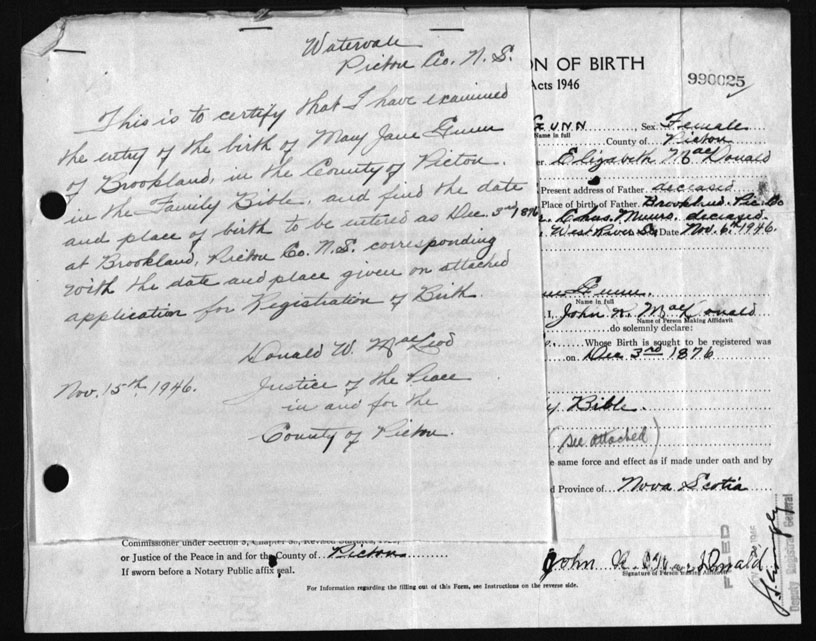 Watervale
Pictou Co. N. S.
This is to certify that I have examined
the entry of the birth of Mary Jane Gunn
of Brookland, in the County of Pictou.
in the Family Bible, and find the date
and place of birth to be entered as Dec. 3rd 1876
at Brookland, Pictou Co. N.S. corresponding
with the date and place given on attached
application for Registration of Birth.
Donald W. MacLeod
Nov. 15th, 1946.
Justice of the Peace
in and for the
County of Pictou.
ON OF BIRTH
Acts 1946
990025
GUNN, Sex Female
Name in full
County of Pictou
Elizabeth MacDonald
Present address of Father deceased
Place of birth of Father Brookland Pic. Co
Chas. Munro, deceased.
West River Date Nov. 6th 1946.
Gunn.
Name in full
I, John R. MacDonald
Name of Person Making Affidavit
do solemnly declare:
Whose Birth is sought to be registered was
on Dec 3rd 1876
y Bible.
(see attached)
e same force and effect as if made under oath and by
d Province of Nova Scotia
Commissioner under Section 3, Chapter
or Justice of the Peace in and for the County of Pictou
If sworn before a Notary Public affix seal.
John R. MacDonald
Signature of Person Making Affidavit
For Information regarding the filling out of this Form, see Instructions on the reverse side.
FILED
Deputy Registrar General